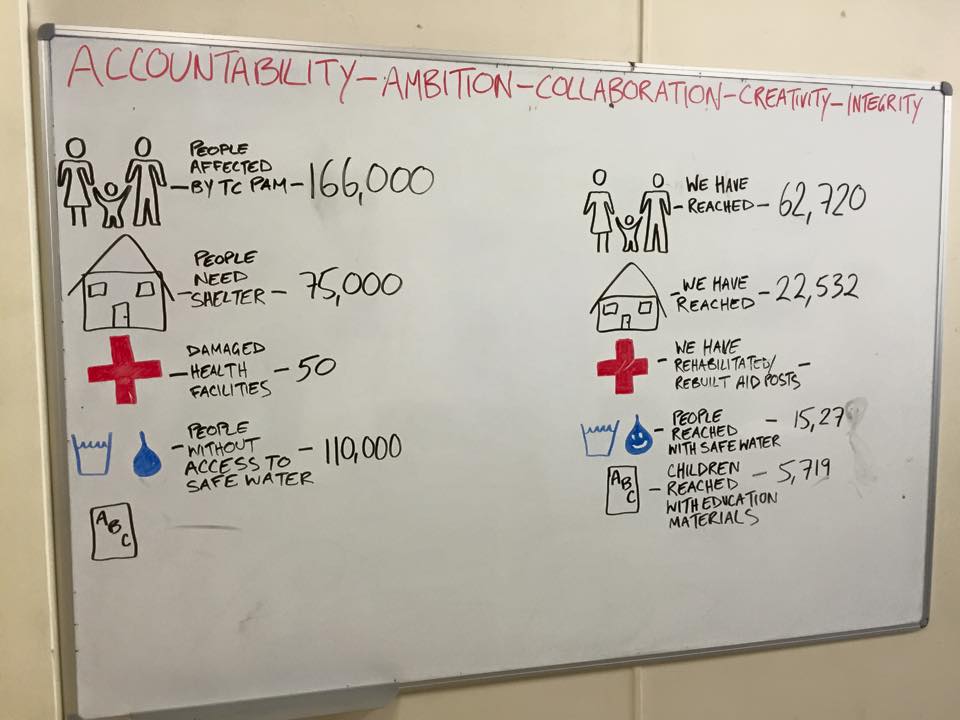 ACCOUNTABILITY-AMBITION-COLLABORATION-CREATIVITY-INTEGRITY
PEOPLE
AFFECTED
- BY TC PAM - 166,000
PEOPLE
- NEED
SHELTER - 75,000
DAMAGED
- HEALTH - 50
FACILITIES
- PEOPLE
WITHOUT - 110,000
ACCESS TO
SAFE WATER
A
B
C
WE HAVE
- REACHED - 62,720
- WE HAVE - 22,532
REACHED
- WE HAVE
REHABILITATED/ -
REBUILT AID POSTS
- PEOPLE - 15,27
REACHED
WITH SAFE WATER
A
B
C
- CHILDREN - 5,719
REACHED
WITH EDUCATION
MATERIALS